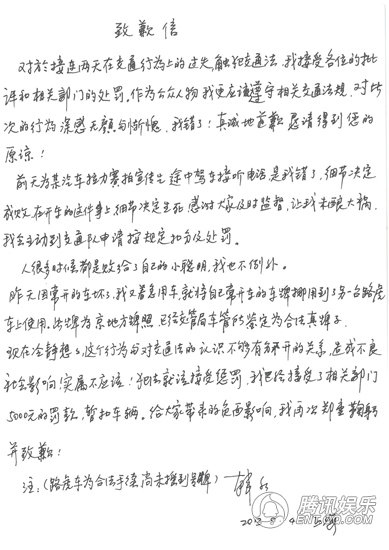 致歉信
对於接连两天在交通行为上的过失,触犯交通法,我接受各位的批
评和相关部门的处罚。作为公众人物我更应谨遵守相关交通法规,对此
次的行为深感无颜与惭愧,我错了!真诚地道歉恳请得到您的
原谅!
前天为某汽车拉力赛拍宣传 途中驾车接听电话是我错了,细节决定
成败,在开车的这件事上,细节决定生死,感谢大家及时监督,让我未酿大祸,
我会主动到交通队申请按规定扣分及处罚。
人很多时候都是败给了自己的小聪明,我也不例外。
昨天因常开的车坏了,我又着急用车,就将自己常开车的车牌挪用到了另一台路虎
车上使用。此牌为京地方牌照,已经交管局车管所鉴定为合法真牌子。
现在冷静想想,这个行为与对交通法的认识不够有分不开的关系,造成不良
社会影响!实属不应该!犯法就该接受惩罚,我已经接受了相关部门
5000元的罚款,暂扣车辆。给大家带来的负面影响,我再次郑重鞠躬
并致歉!
注:(路虎车为合法手续,尚未换到号牌)
腾讯娱乐
ENT.QQ.COM